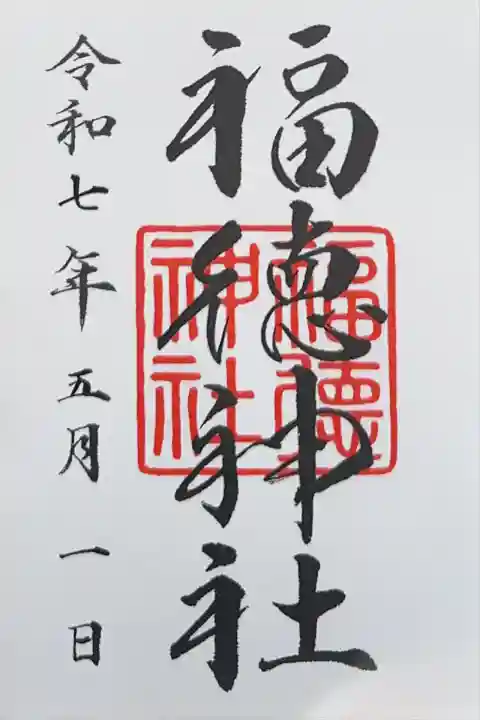 福徳神社
福徳
神社
令和七年五月一日